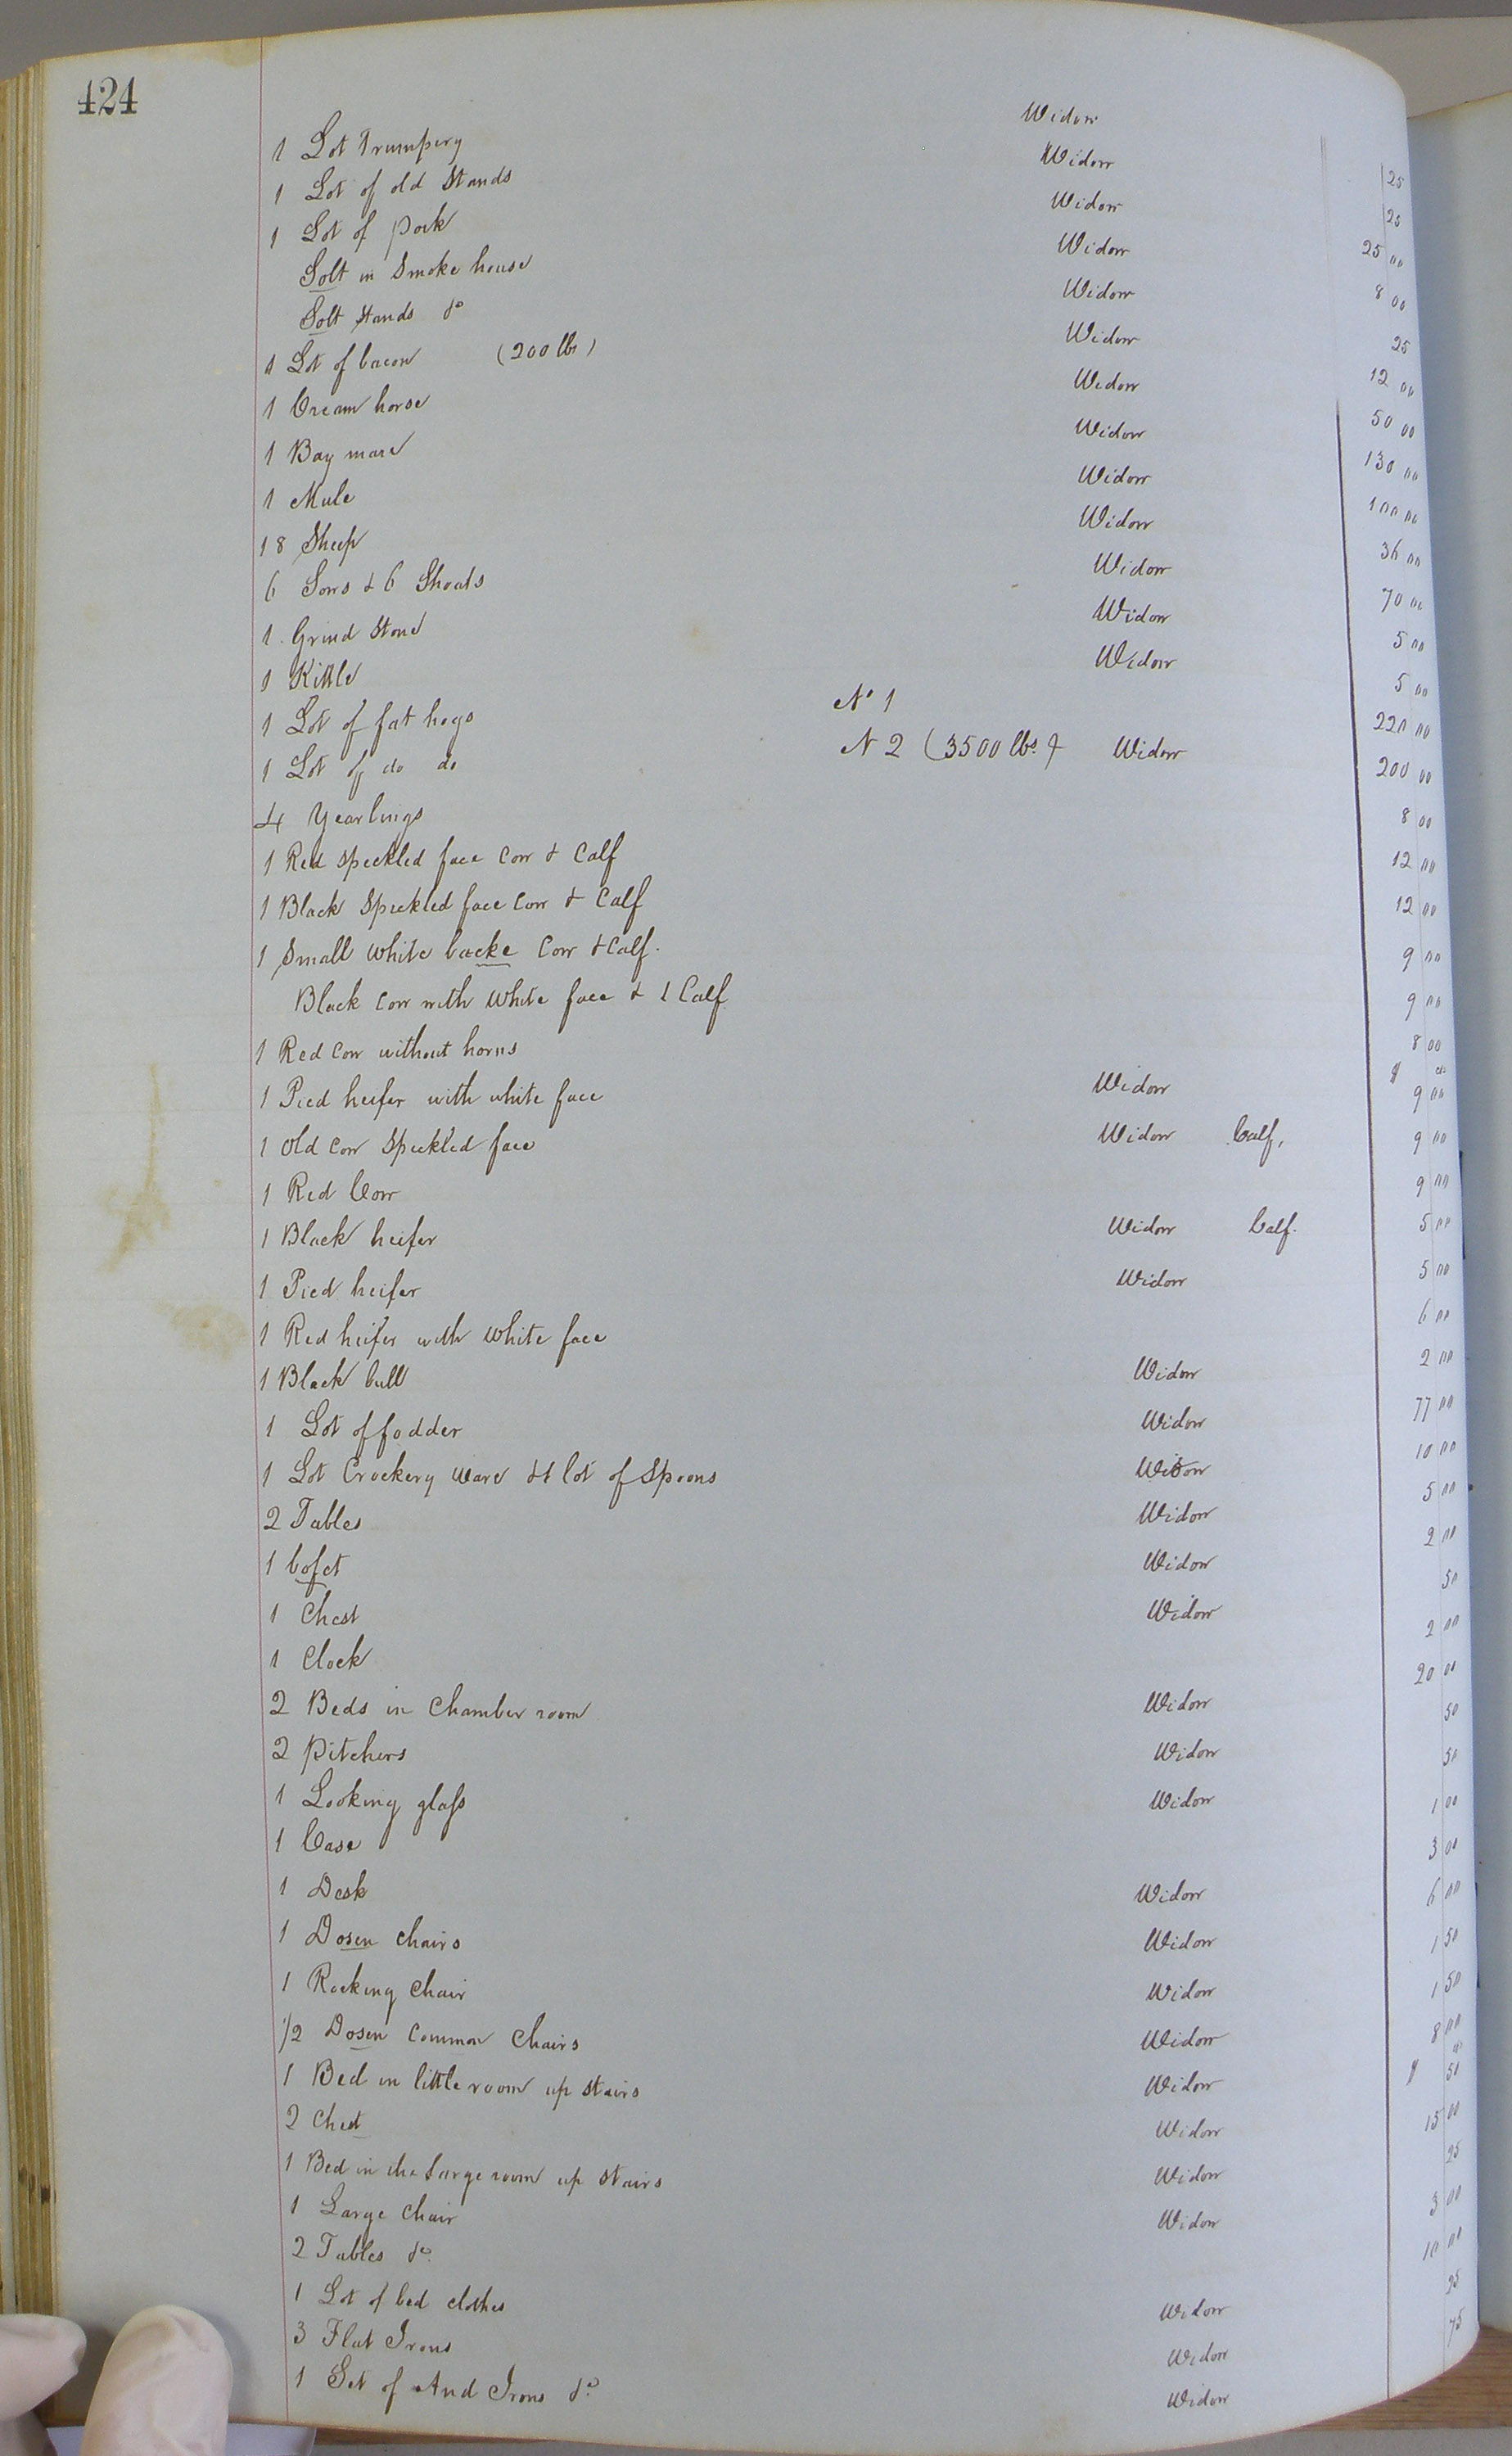 424
1 Lot Trumpery Widow 25
1 Lot of old Stands Widow 25
1 Lot of pork Widow 25 00
Solt in Smoke house Widow 8 00
Solt Stands &c Widow 25
1 Lot of bacon (200 lbs) Widow 12 00
1 Cream horse Widow 50 00
1 Bay mare Widow 130 00
1 Mule Widow 100 00
18 Sheep Widow 36 00
6 Sows & 6 Shoats Widow 70 00
1 Grind Stone Widow 5 00
1 Kittle Widow 5 00
1 Lot of fat hogs No 1 220 00
1 Lot of do do N 2 (3500 lbs) Widow 200 00
4 Yearlings 8 00
1 Red speckled face Cow & Calf 12 00
1 Black Speckled face Cow & Calf 12 00
1 Small White backe Cow & Calf. 9 00
Black Cow with White face & 1 Calf 9 00
1 Red Cow without horns 8 00
$ cts
1 Pied heifer with white face Widow 9 00
1 Old Cow Speckled face Widow Calf, 9 00
1 Red Cow 9 00
1 Black heifer Widow Calf. 5 00
1 Pied heifer Widow 5 00
1 Red heifer with White face 6 00
1 Black bull Widow 2 00
1 Lot of fodder Widow 77 00
1 Lot Crockery Ware & 1 lot of Spoons Widow 10 00
2 Tables Widow 5 00
1 bofet Widow 2 00
1 Chest Widow 50
1 Clock 2 00
2 Beds in Chamber room Widow 20 00
2 Pitchers Widow 50
1 Looking glass Widow 50
1 Case 1 00
1 Desk Widow 3 00
1 Dosen chairs Widow 6 00
1 Rocking Chair Widow 1 50
1/2 Dosen Common Chairs Widow 1 50
1 Bed in little room up stairs Widow 8 00
$ cts
2 Chest Widow 50
1 Bed in the large room up Stairs Widow 15 00
1 Large Chair Widow 25
2 Tables &c. 3 00
1 Lot of bed clothes Widow 10 00
3 Flat Irons Widow 25
1 Set of And Irons &c Widow 75